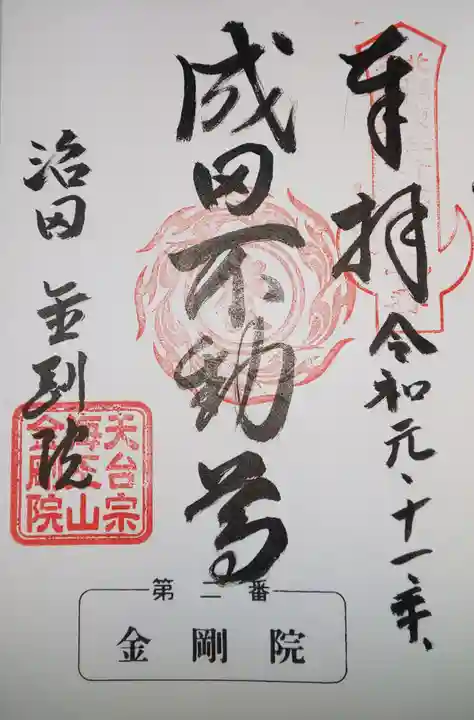 奉拝
令和元、十一、
成田不動尊
沼田 金剛院
天台宗
金剛院
第二番
金剛院